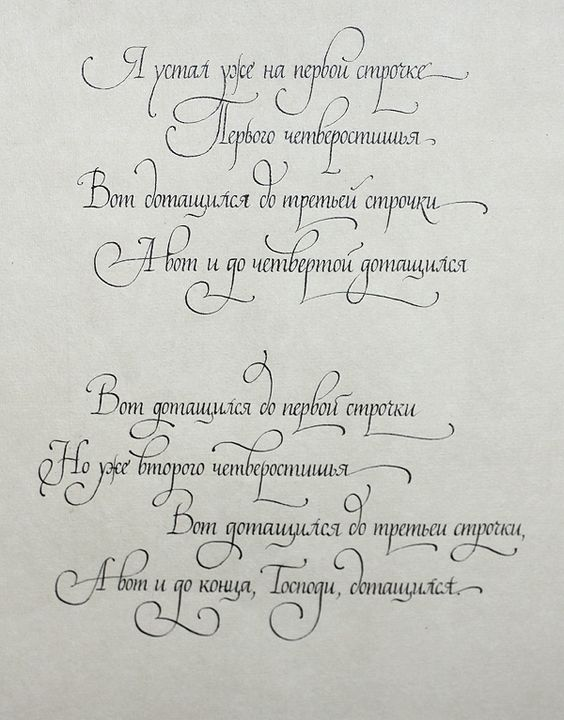 Я устал уже на первой строчке
Первого четверостишья
Вот дотащился до третьей строчки
А вот и до четвертой дотащился
Вот дотащился до первой строчки
Но уже второго четверостишья
Вот дотащился до третьей строчки,
А вот и до конца, Господи, дотащился.